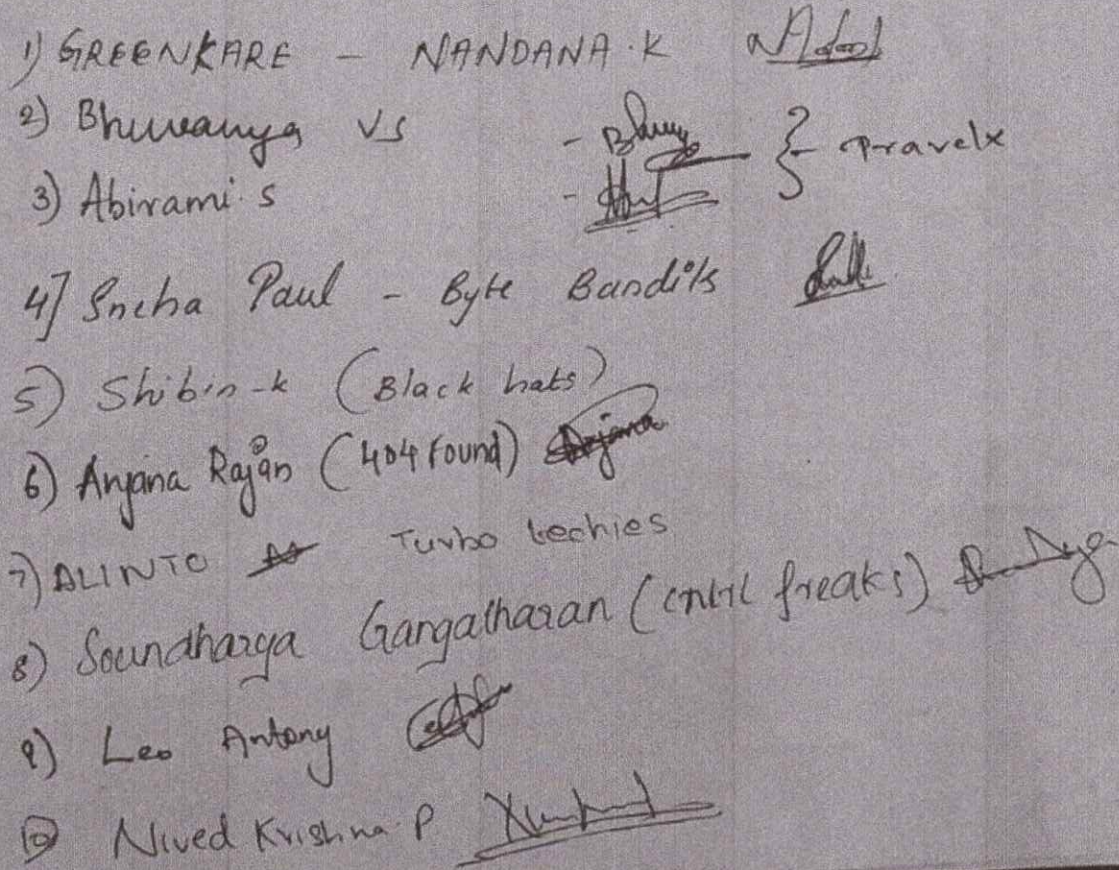 1) GREENKARE - NANDANA.K
2) Bhuvanya VS - } Travelx
3) Abirami.S -
4] Sneha Paul - Byte Bandits
5) Shibin-k (Black hats)
6) Anjana Rajan (404 found) Anjana
7) ALINTO Turbo techies
8) Soundharya Gangatharan (cntrl freaks)
9) Leo Antony
10 Nived Krishna.P